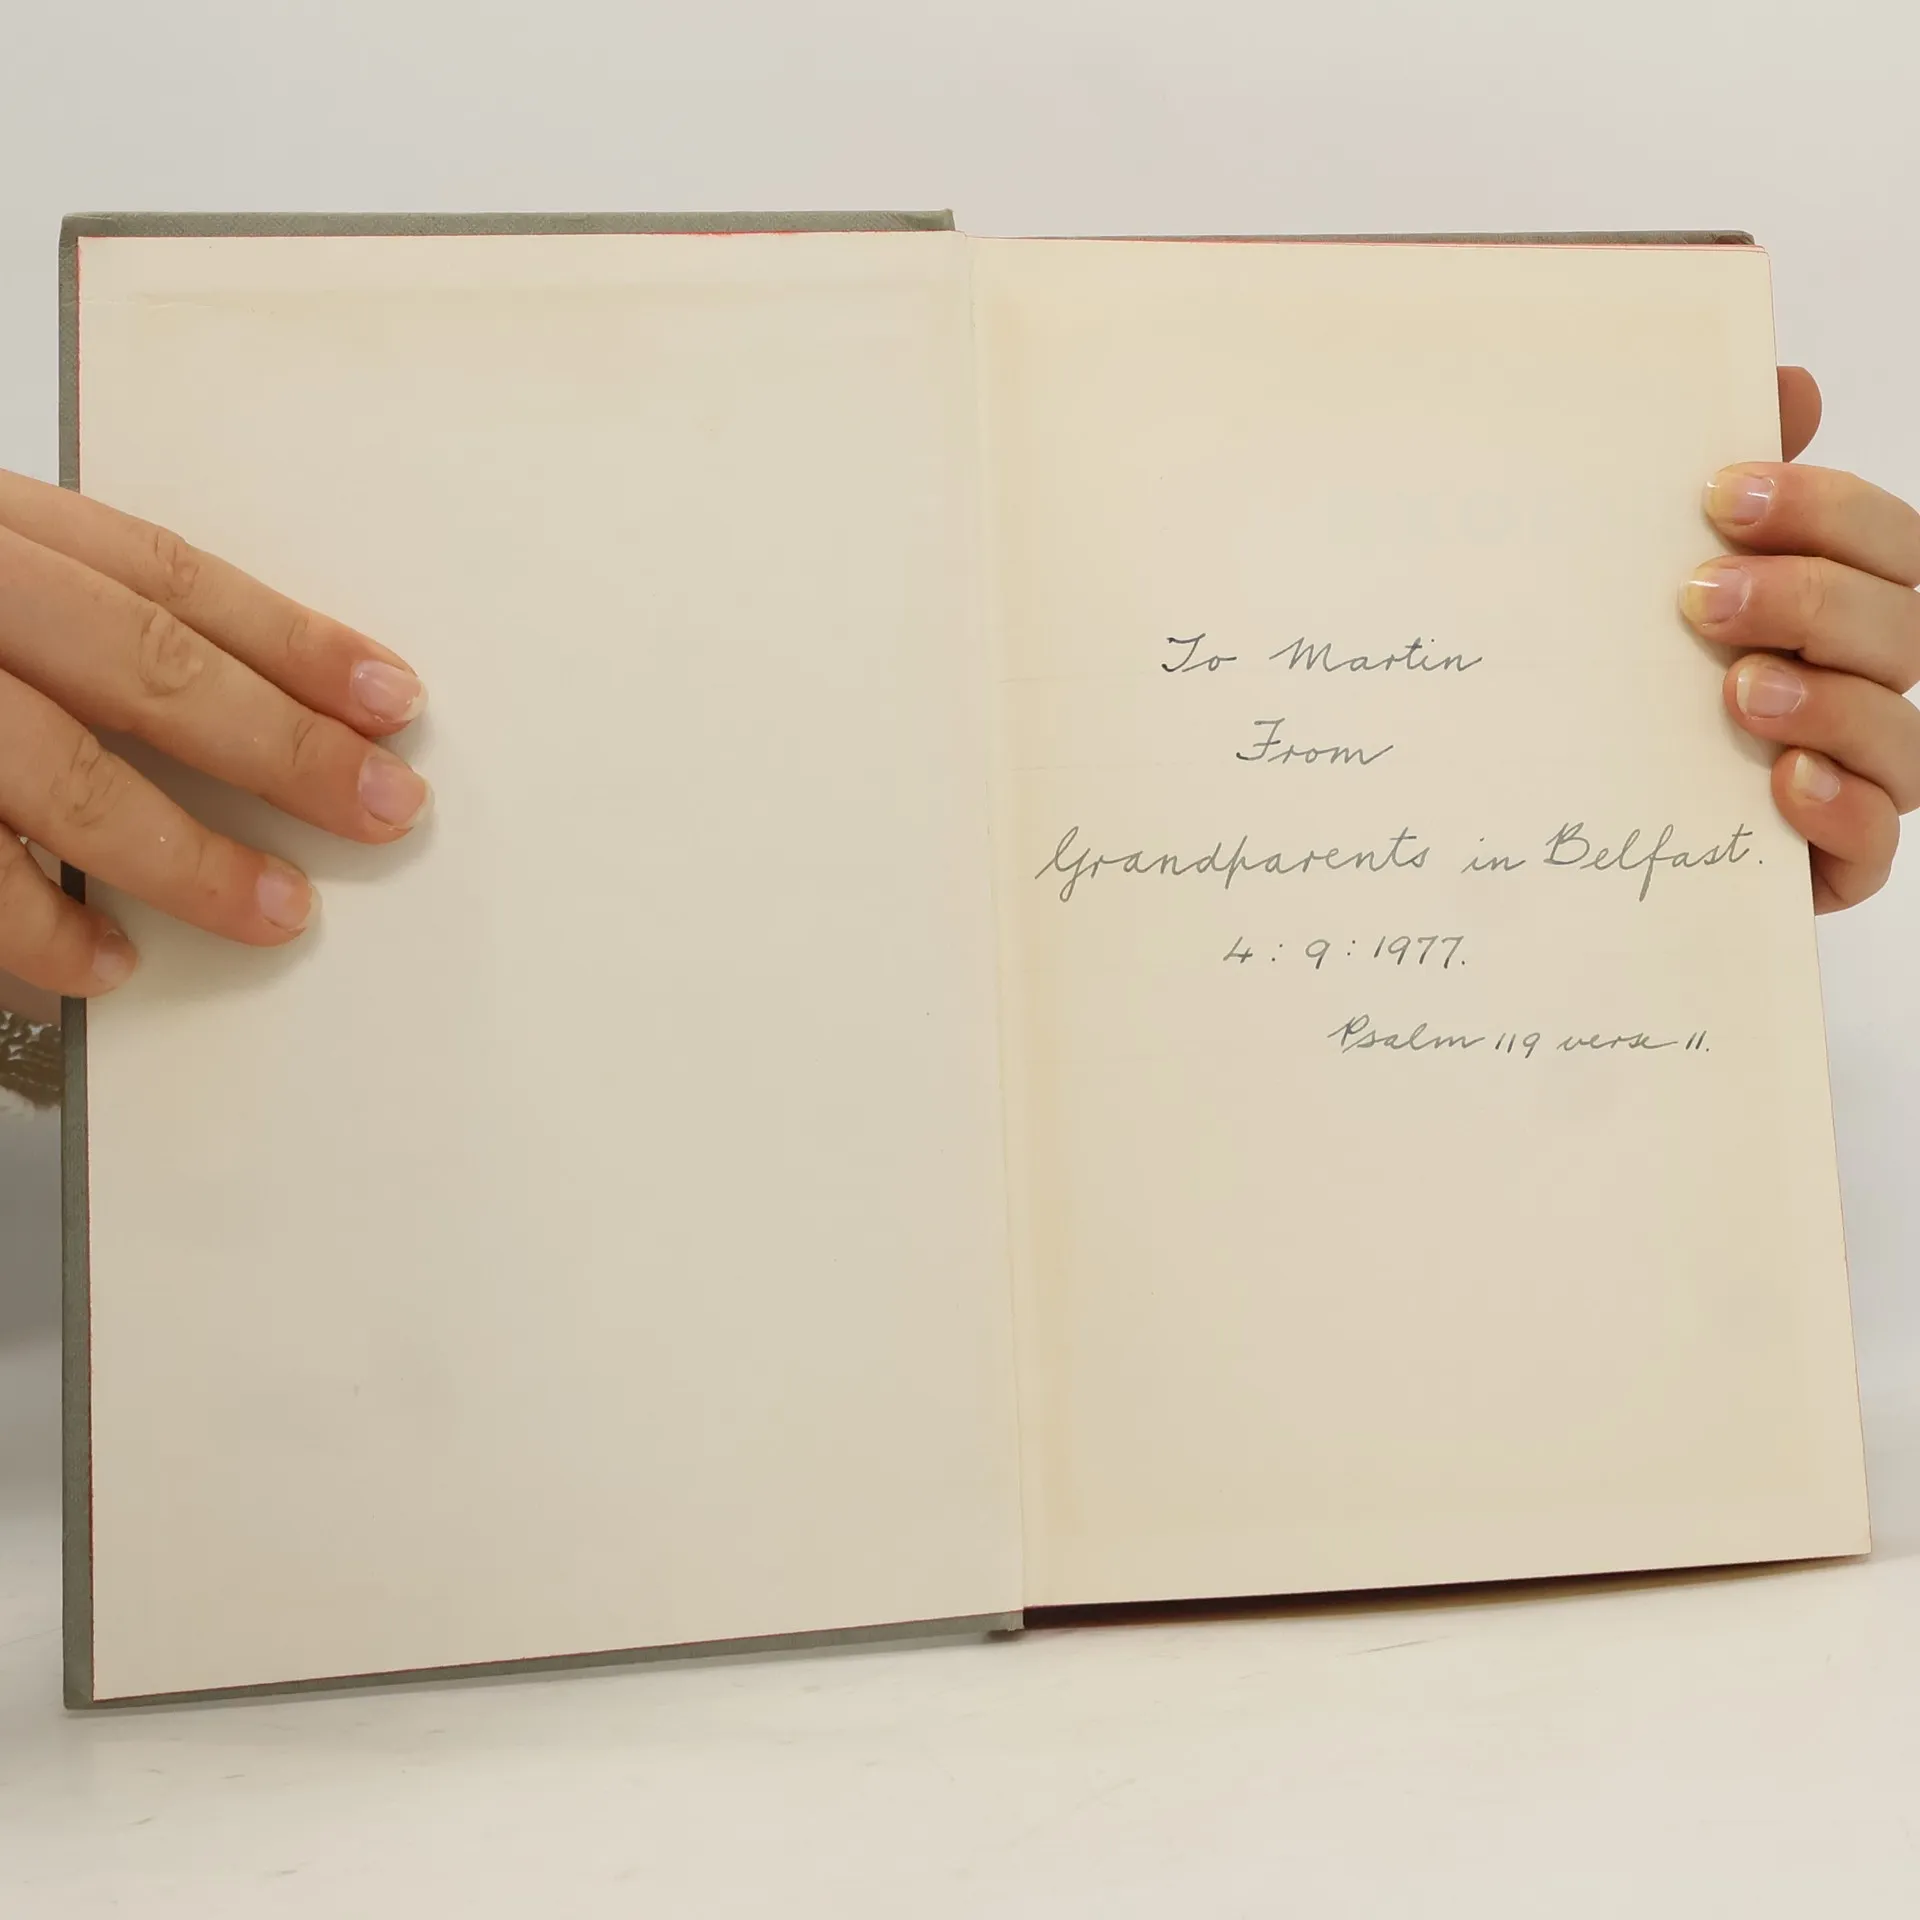 To Martin
From
Grandparents in Belfast.
4 : 9 : 1977.
Psalm 119 verse 11.